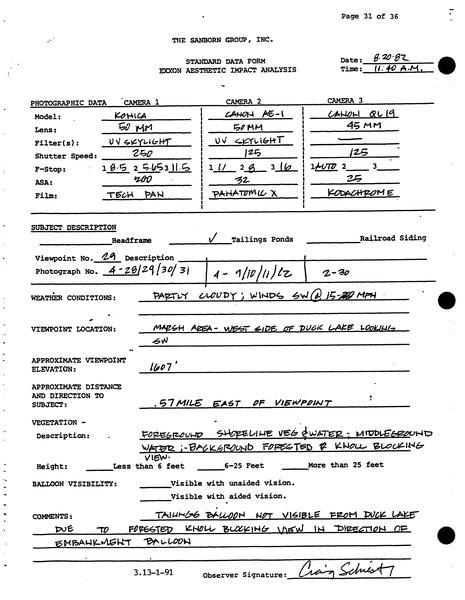 Page 31 of 36
THE SANBORN GROUP, INC.
STANDARD DATA FORM
EXXON AESTHETIC IMPACT ANALYSIS
Date: 8.20.82
Time: 11:40 A.M.
PHOTOGRAPHIC DATA CAMERA 1 CAMERA 2 CAMERA 3
Model: KONICA CANON AE-1 CANON QL19
Lens: 50 MM 50MM 45MM
Filter(s): UV SKYLIGHT UV SKYLIGHT —
Shutter Speed: 250 125 125
F-Stop: 1 8.5 2 5.6 3 11.5 1 11 2 8 3 16 1 AUTO 2 3
ASA: 200 32 25
Film: TECH PAN PANATOMIC X KODACHROME
SUBJECT DESCRIPTION
Headframe ✓ Tailings Ponds Railroad Siding
Viewpoint No. 29 Description
Photograph No. 4-28/29/30/31 4-9/10/11/12 2-30
WEATHER CONDITIONS: PARTLY CLOUDY; WINDS SW @ 15- MPH
VIEWPOINT LOCATION: MARSH AREA- WEST SIDE OF DUCK LAKE LOOKING
SW
APPROXIMATE VIEWPOINT
ELEVATION: 1607'
APPROXIMATE DISTANCE
AND DIRECTION TO
SUBJECT: .57 MILE EAST OF VIEWPOINT
VEGETATION -
Description: FOREGROUND SHORELINE VEG & WATER; MIDDLEGROUND
WATER;-BACKGROUND FORESTED & KNOLL BLOCKING
VIEW.
Height: Less than 6 feet 6-25 Feet More than 25 feet
BALLOON VISIBILITY: Visible with unaided vision.
Visible with aided vision.
COMMENTS: TAILINGS BALLOON NOT VISIBLE FROM DUCK LAKE
DUE TO FORESTED KNOLL BLOCKING VIEW IN DIRECTION OF
EMBANKMENT BALLOON
3.13-1-91 Observer Signature: Craig